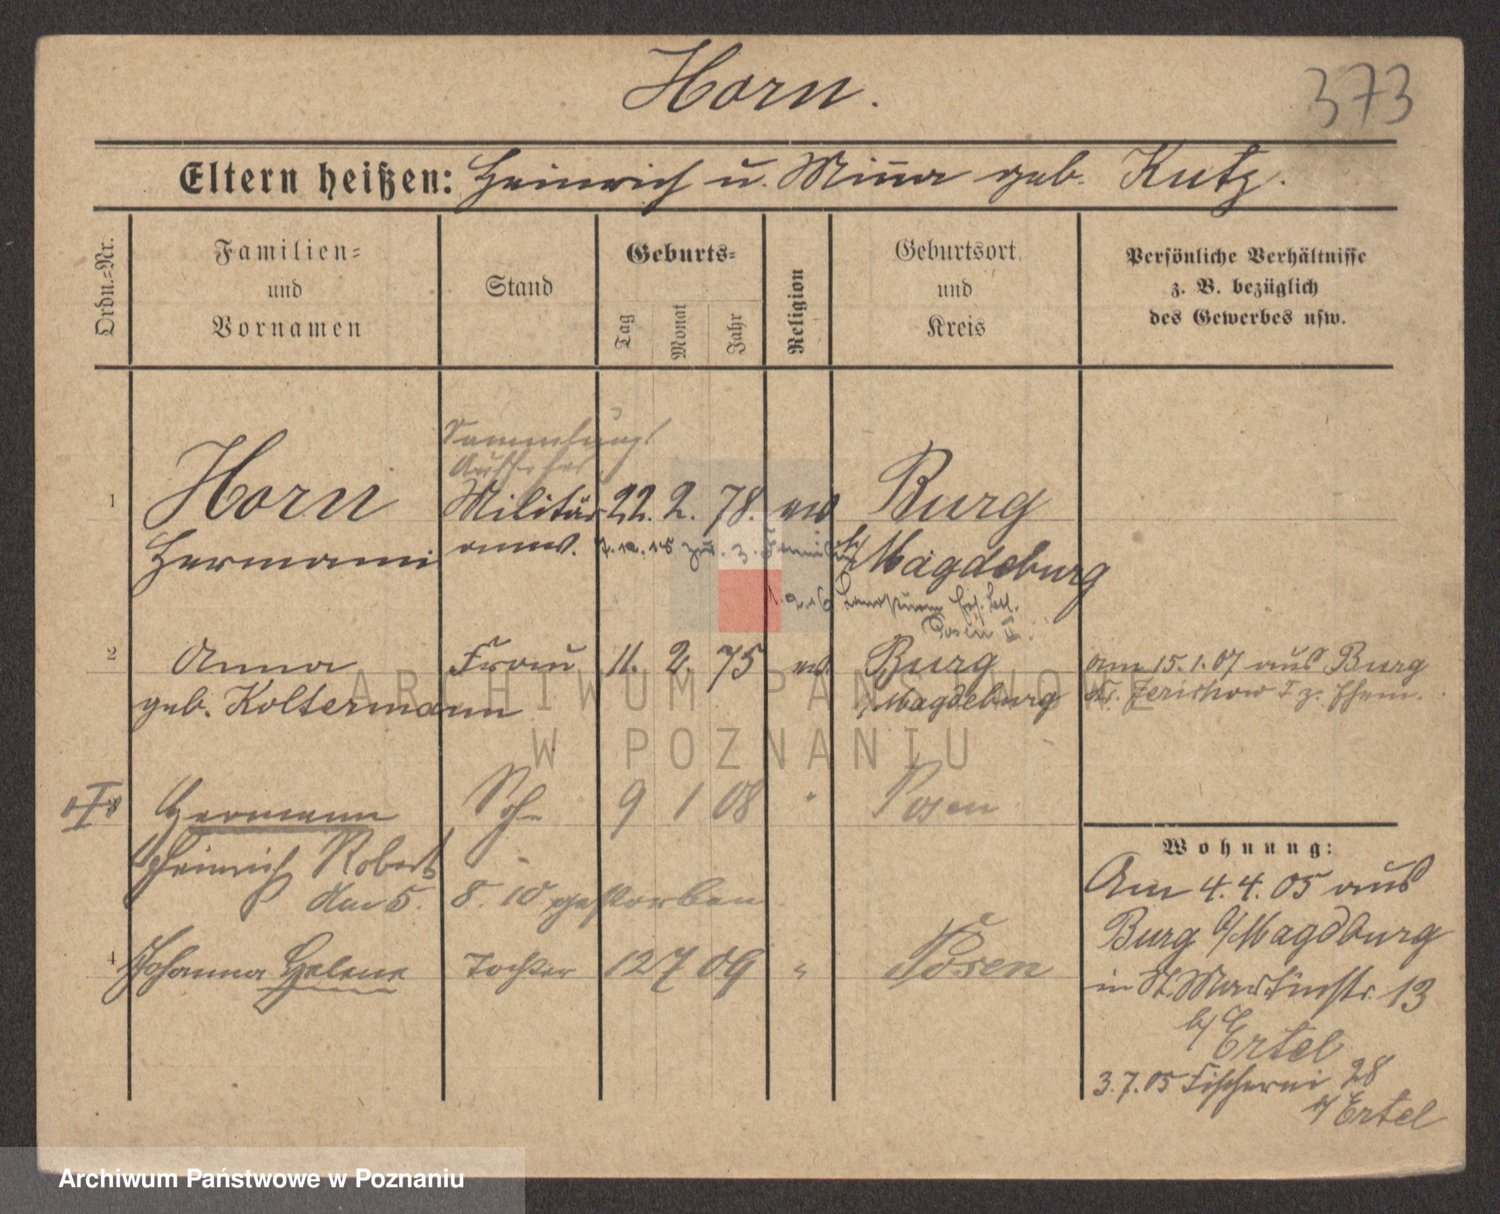 Horn.
373
Eltern heißen: Heinrich u. Minna geb. Kutz.
Ordn.-Nr.
Familien-
und
Vornamen
Stand
Geburts-
Tag
Monat
Jahr
Religion
Geburtsort
und
Kreis
Persönliche Verhältnisse
z. B. bezüglich
des Gewerbes usw.
Sammlungs
Aufseher
1 Horn Militär 22. 2. 78. ev Burg
Hermann anw. b/ Magdeburg
1.2.16 Landsturm
Posen
2 Anna Frau 11. 2. 75 ev. Burg
geb. Koltermann b/ Magdeburg
am 15. 1. 07 aus Burg
Kr. Jerichow I z. Ehem.
3 Hermann Sohn 9 1 08 " Posen
Heinrich Robert
den 5. 8. 10 gestorben.
4 Johanna Helene Tochter 12 7 09 " Posen
Wohnung:
Am 4. 4. 05 aus
Burg b/Magdburg
in St. Martinstr. 13
b/ Ertel
3. 7. 05 Fischerei 28
b/ Ertel
ARCHIWUM PAŃSTWOWE
W POZNANIU
Archiwum Państwowe w Poznaniu